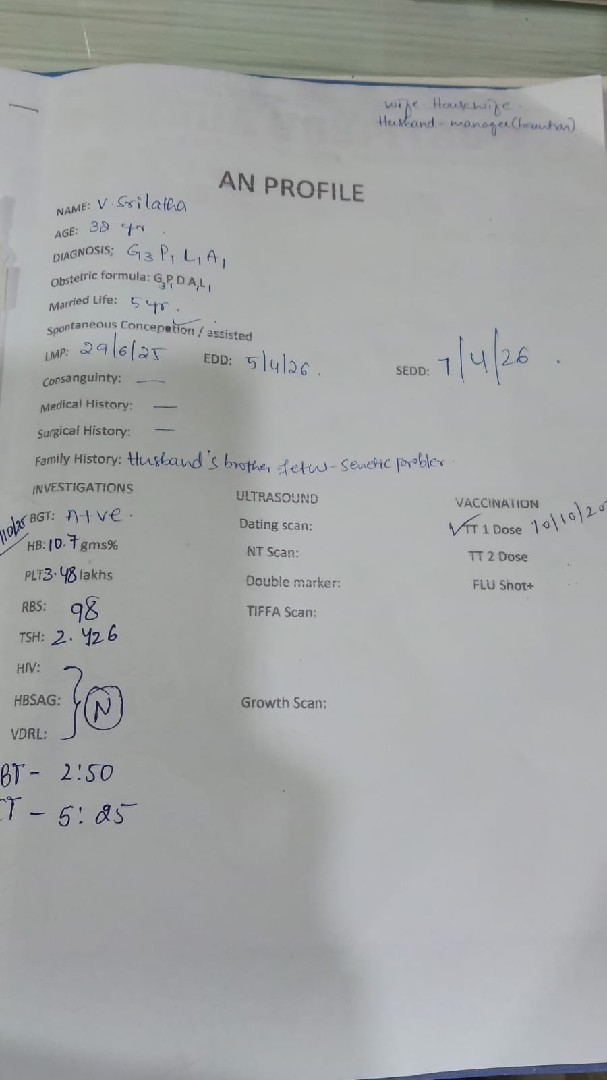 Wife - Housewife
Husband - manager
AN PROFILE
NAME: V. Srilatha
AGE: 38 yr.
DIAGNOSIS; G3 P1 L1 A1
Obstetric formula: G3P1D A1L1
Married Life: 5 yr.
Spontaneous Concepetion / assisted
LMP: 29/6/25 EDD: 5/4/26. SEDD: 7/4/26.
Consanguinty: —
Medical History: —
Surgical History: —
Family History: Husband's brother - Genetic
INVESTIGATIONS ULTRASOUND VACCINATION
BGT: A+ve. Dating scan: TT 1 Dose 10/10/20
HB: 10.7 gms% NT Scan: TT 2 Dose
PLT 3.48 lakhs Double marker: FLU Shot+
RBS: 98 TIFFA Scan:
TSH: 2.426
HIV:
HBSAG: N Growth Scan:
VDRL:
BT - 2:50
CT - 5:25